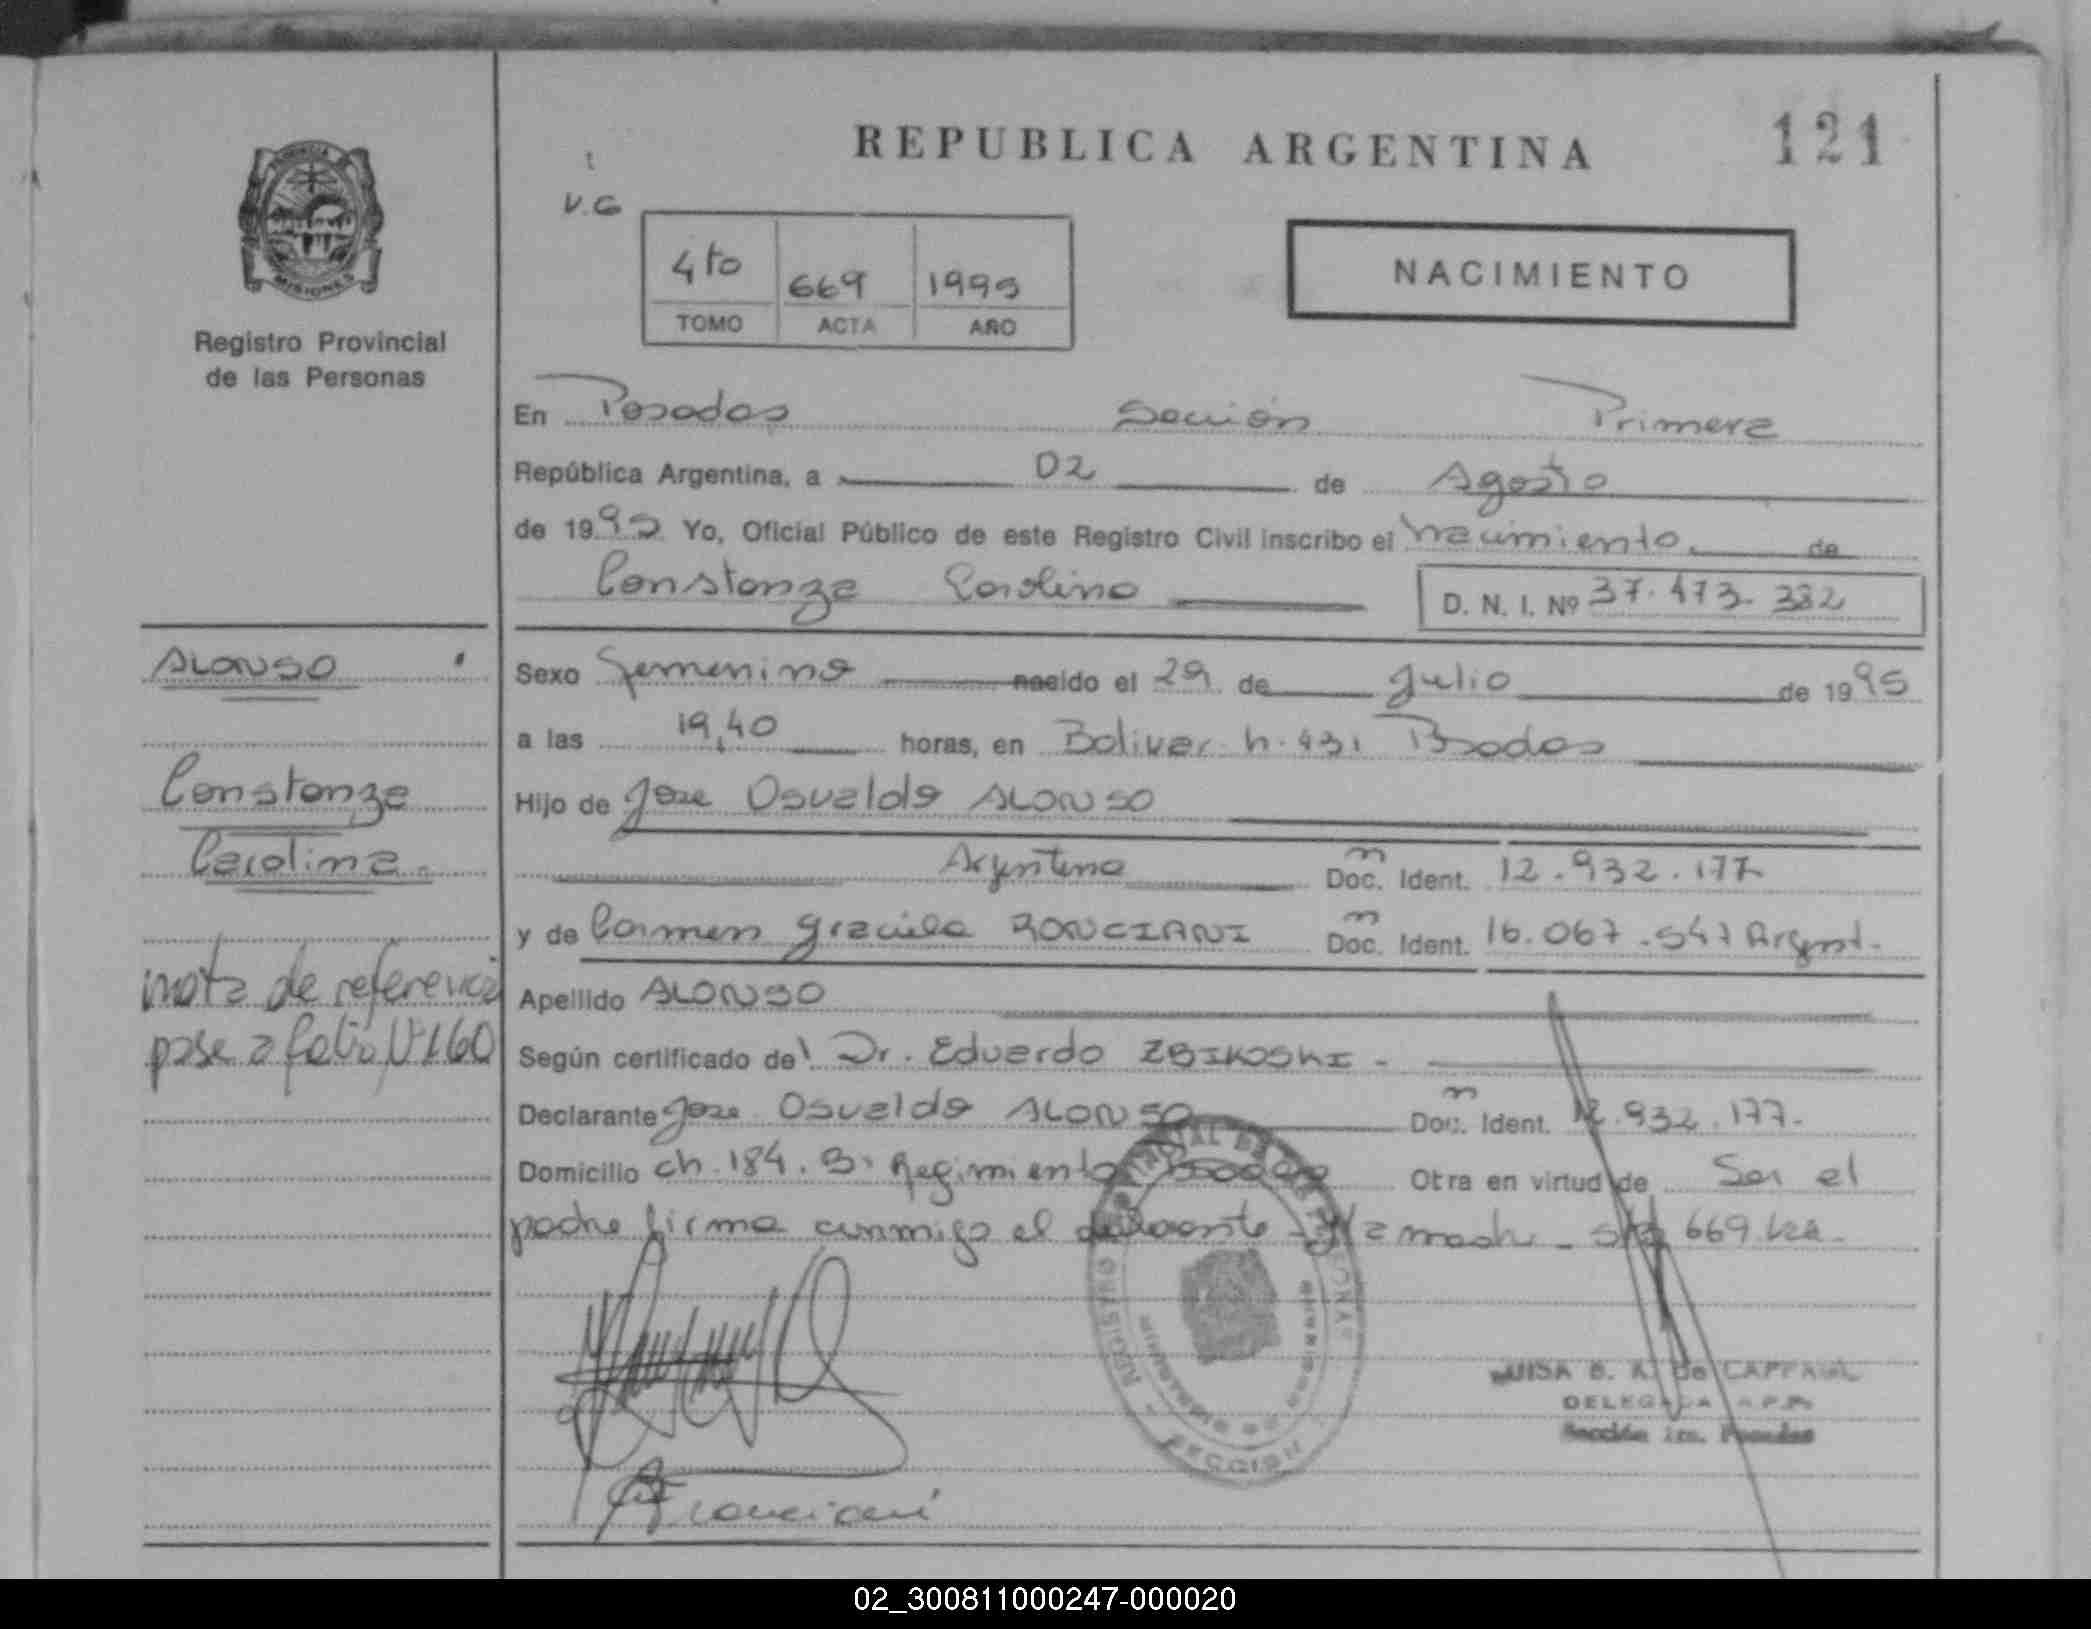 REPUBLICA ARGENTINA
121
V.G
4to 669 1995
TOMO ACTA AÑO
NACIMIENTO
MISIONES
Registro Provincial
de las Personas
En Posadas Sección Primera
República Argentina, a 02 de Agosto
de 1995 Yo, Oficial Público de este Registro Civil inscribo el nacimiento de
Constanza Carolina D. N. I. Nº 37.473.382
ALONSO
Constanza
Carolina.
nota de referencia
pase a folio Nº 160
Sexo Femenino nacido el 29 de Julio de 1995
a las 19,40 horas, en Bolivar n. 431 Posadas
Hijo de Jose Osvaldo ALONSO
Argentino Doc. Ident. 12.932.177
y de Carmen Graciela RONCIANI Doc. Ident. 16.067.547 Argent.
Apellido ALONSO
Según certificado de Dr. Eduardo ZBIKOSKI -
Declarante Jose Osvaldo ALONSO Doc. Ident. 12.932.177.
Domicilio ch. 184. B: Regimiento Posadas Otra en virtud de Ser el
padre firma conmigo el declarante y la madre - 669
LUISA B. A. de
DELEGADA
Sección 1ra. Posadas
SECCION
Ronciani
02_300811000247-000020